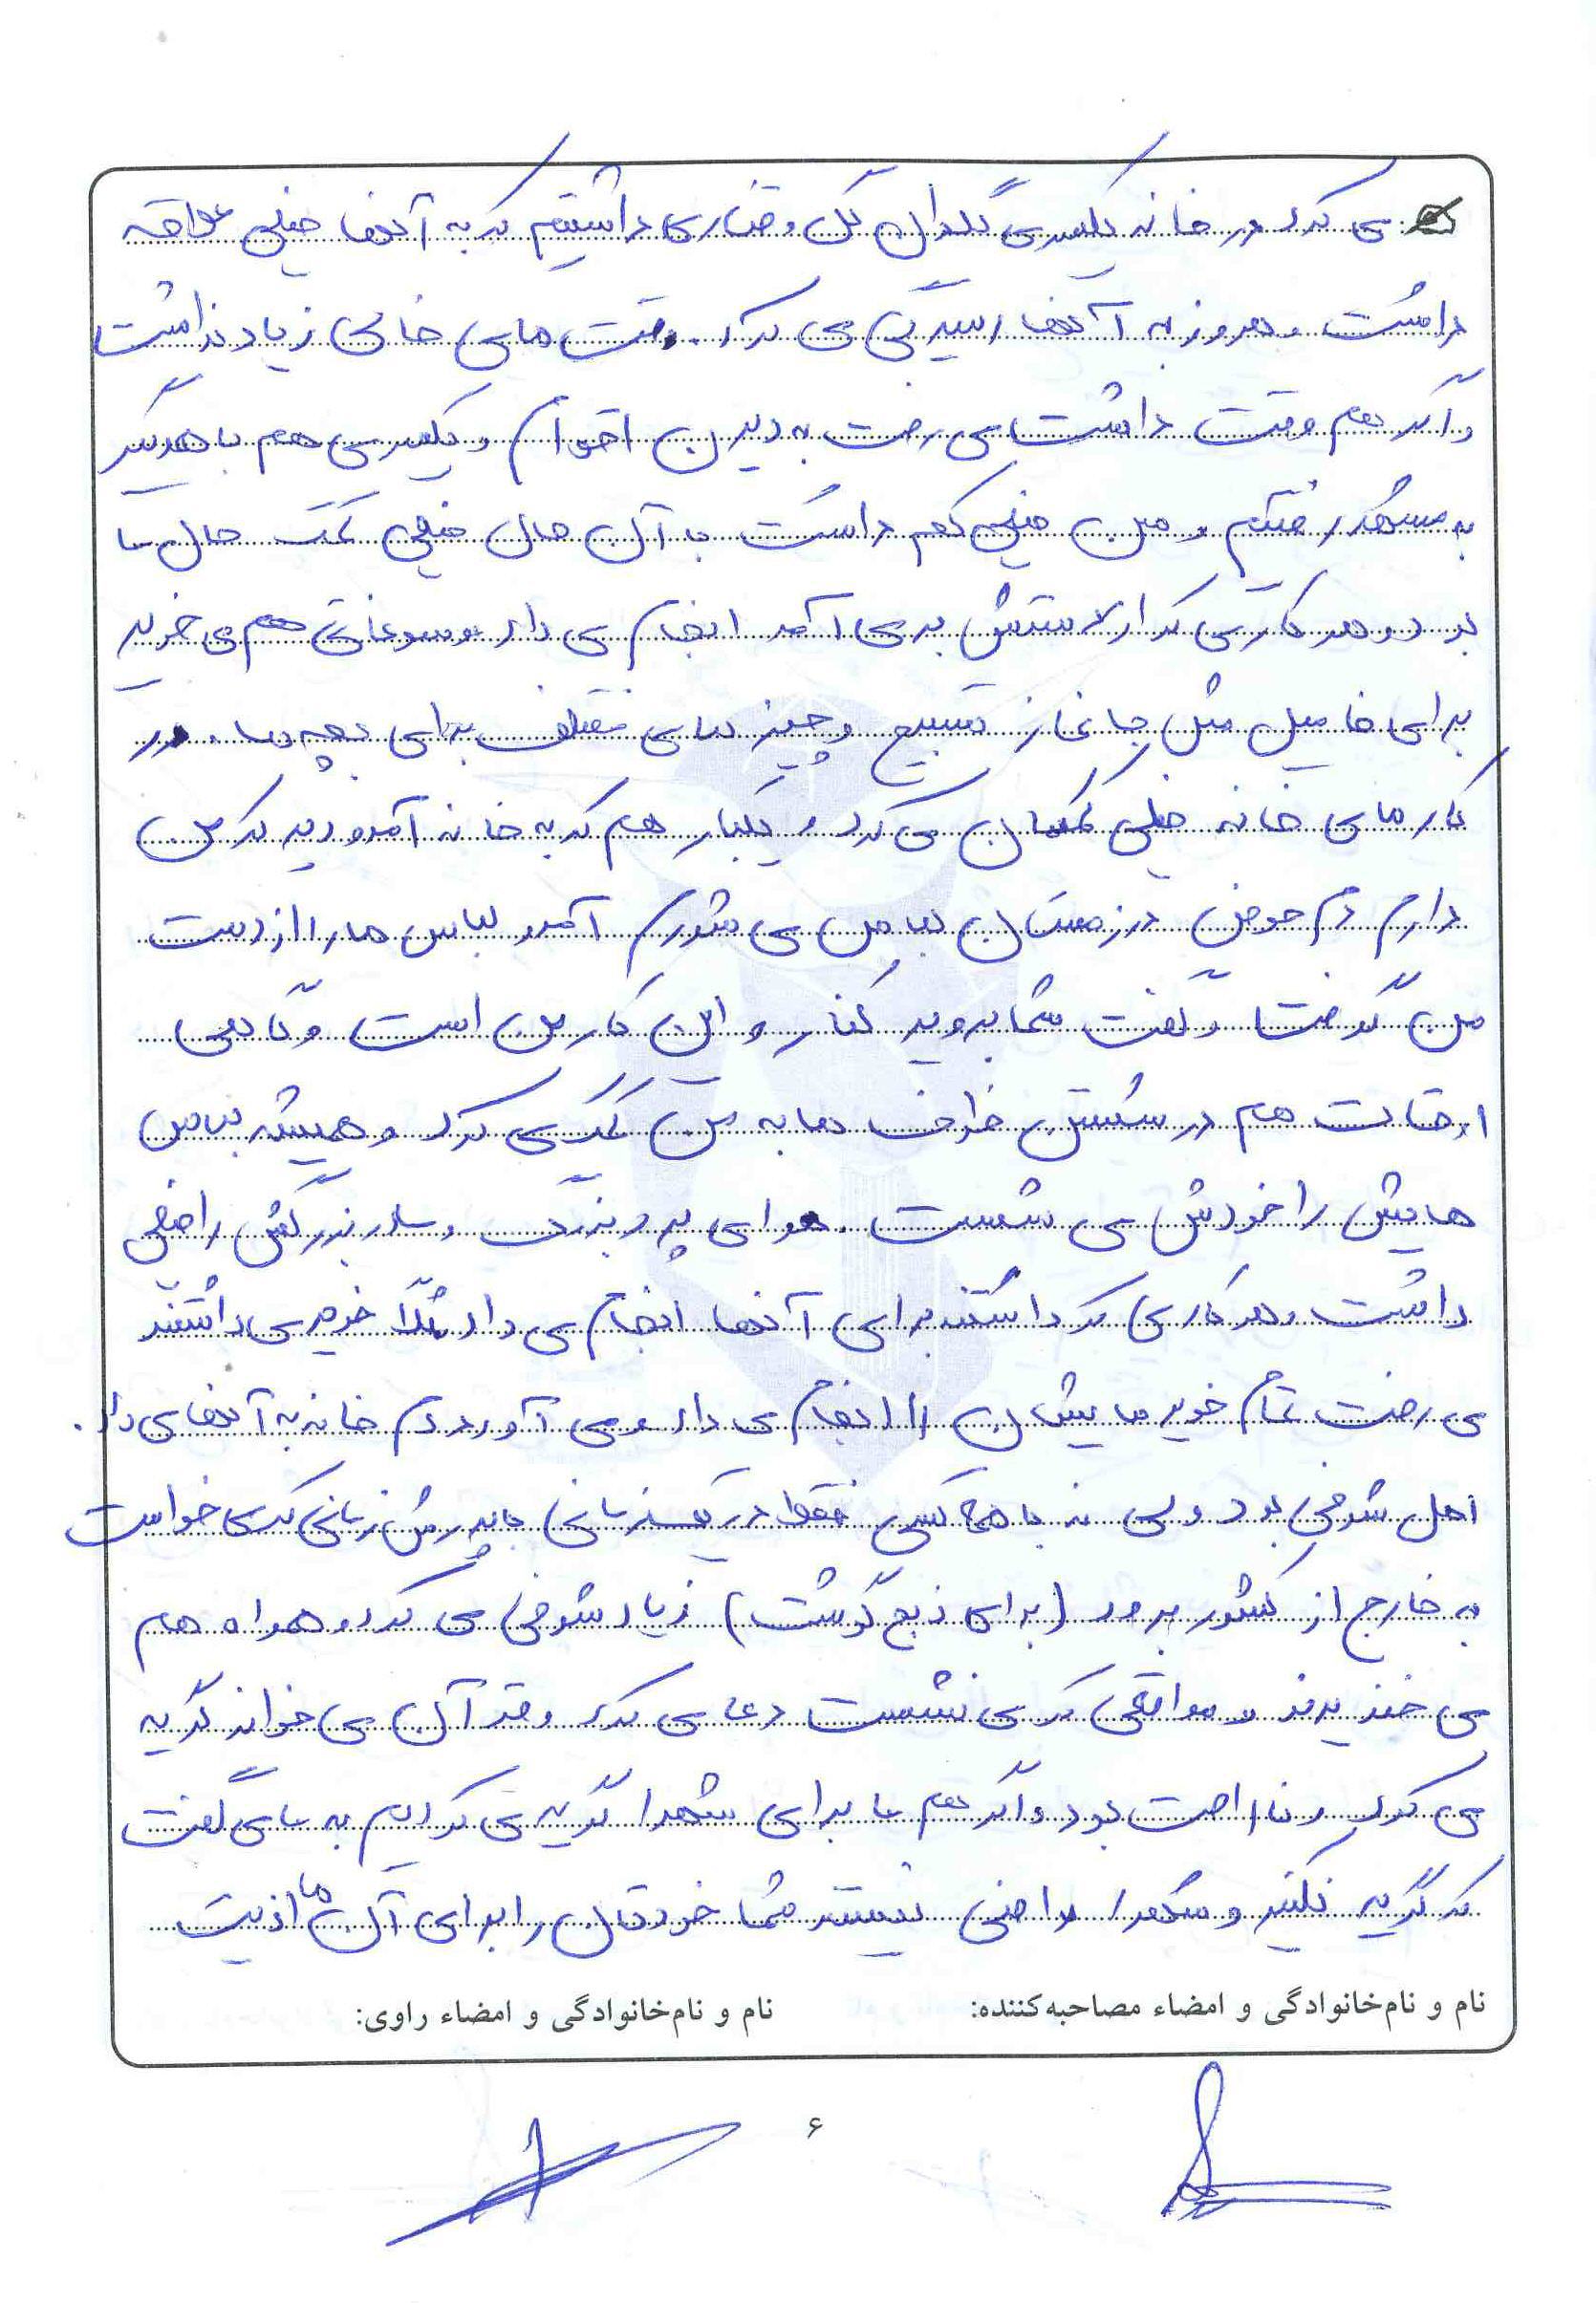 می کرد در خانه یکسری گلدان گل و قناری داشتیم که به آنها خیلی علاقه
داشت و هر روز به آنها رسیدگی می کرد. وقت های خالی زیاد نداشت
و اگر هم وقت داشت می رفت به دیدن اقوام و یکسری هم با همدیگر
به مشهد رفتیم و من خیلی کم داشت با آن حال خیلی کمک حال ما
بود و هر کاری که از دستش بر می آمد انجام می داد و سوغاتی هم می خرید
برای فامیل مثل جانماز تسبیح و چیز های مختلف برای بچه ها. در
کار های خانه خیلی کمکمان می کرد و یکبار هم که به خانه آمد و دید که من
دارم دم حوض در زمستان لباس می شورم آمد و لباس ها را از دست
من گرفت و گفت شما بروید کنار و این کار من است و گاهی
اوقات هم در شستن ظرف ها به من کمک می کرد و همیشه لباس
هایش را خودش می شست. هوای پدر بزرگ و مادر بزرگش را خیلی
داشت و هر کاری که داشتند برای آنها انجام می داد مثلاً خرید می داشتند
می رفت تمام خرید هایشان را انجام می داد و می آورد دم خانه به آنها می داد.
اهل شوخی بود ولی نه با همه کسی فقط در یک زمانی با پدرش زمانی که می خواست
به خارج از کشور برود (برای ذبح گوشت) زیاد شوخی می کرد و همراه هم
می خندیدند و مواقعی که می نشست دعا می کرد و قرآن می خواند گریه
می کرد و ناراحت بود و اگر هم ما برای شهدا گریه می کردیم به ما می گفت
که گریه نکنید و شهدا راضی نیستند شما خودتان را برای آن ها اذیت
نام و نام‌خانوادگی و امضاء مصاحبه‌کننده: نام و نام‌خانوادگی و امضاء راوی:
۶